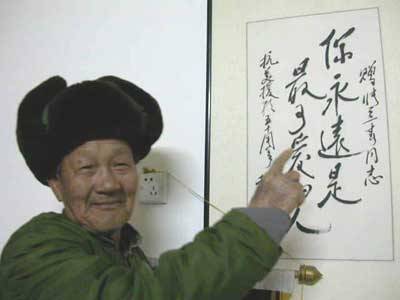 赠
同志
你永遠是
最可爱的人
抗美援朝五十周年